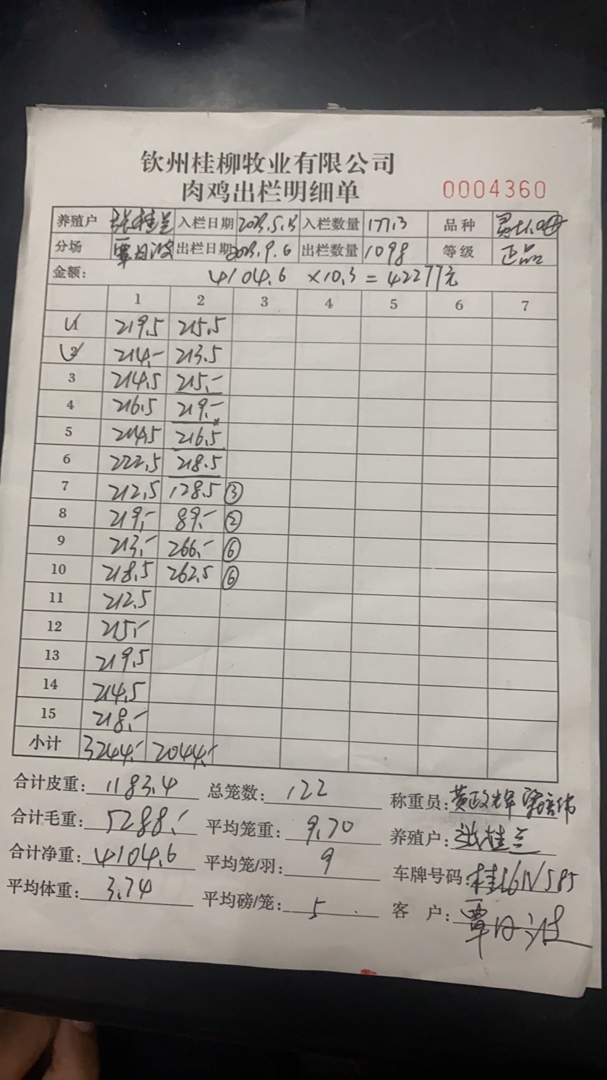 钦州桂柳牧业有限公司
肉鸡出栏明细单 0004360
养殖户 张桂兰 入栏日期 入栏数量 1771.3 品种
分场 覃日波 出栏日期 2023.9.6 出栏数量 1098 等级 正品
金额: 4104.6 ×10.3 = 42277元
1 2 3 4 5 6 7
1 219.5 215.5
2 214.- 213.5
3 214.5 215.-
4 216.5 219.-
5 214.5 216.5
6 222.5 218.5
7 212.5 128.5 ③
8 219.- 89.- ②
9 213.- 266.- ⑥
10 218.5 262.5 ⑥
11 212.5
12 215.-
13 219.5
14 214.5
15 218.-
小计 3244.- 2044.-
合计皮重: 1183.4 总笼数: 122 称重员: 黄政辉
合计毛重: 5288.- 平均笼重: 9.70 养殖户: 张桂兰
合计净重: 4104.6 平均笼/羽: 9 车牌号码:
平均体重: 3.74 平均磅/笼: 5 客户: 覃日波